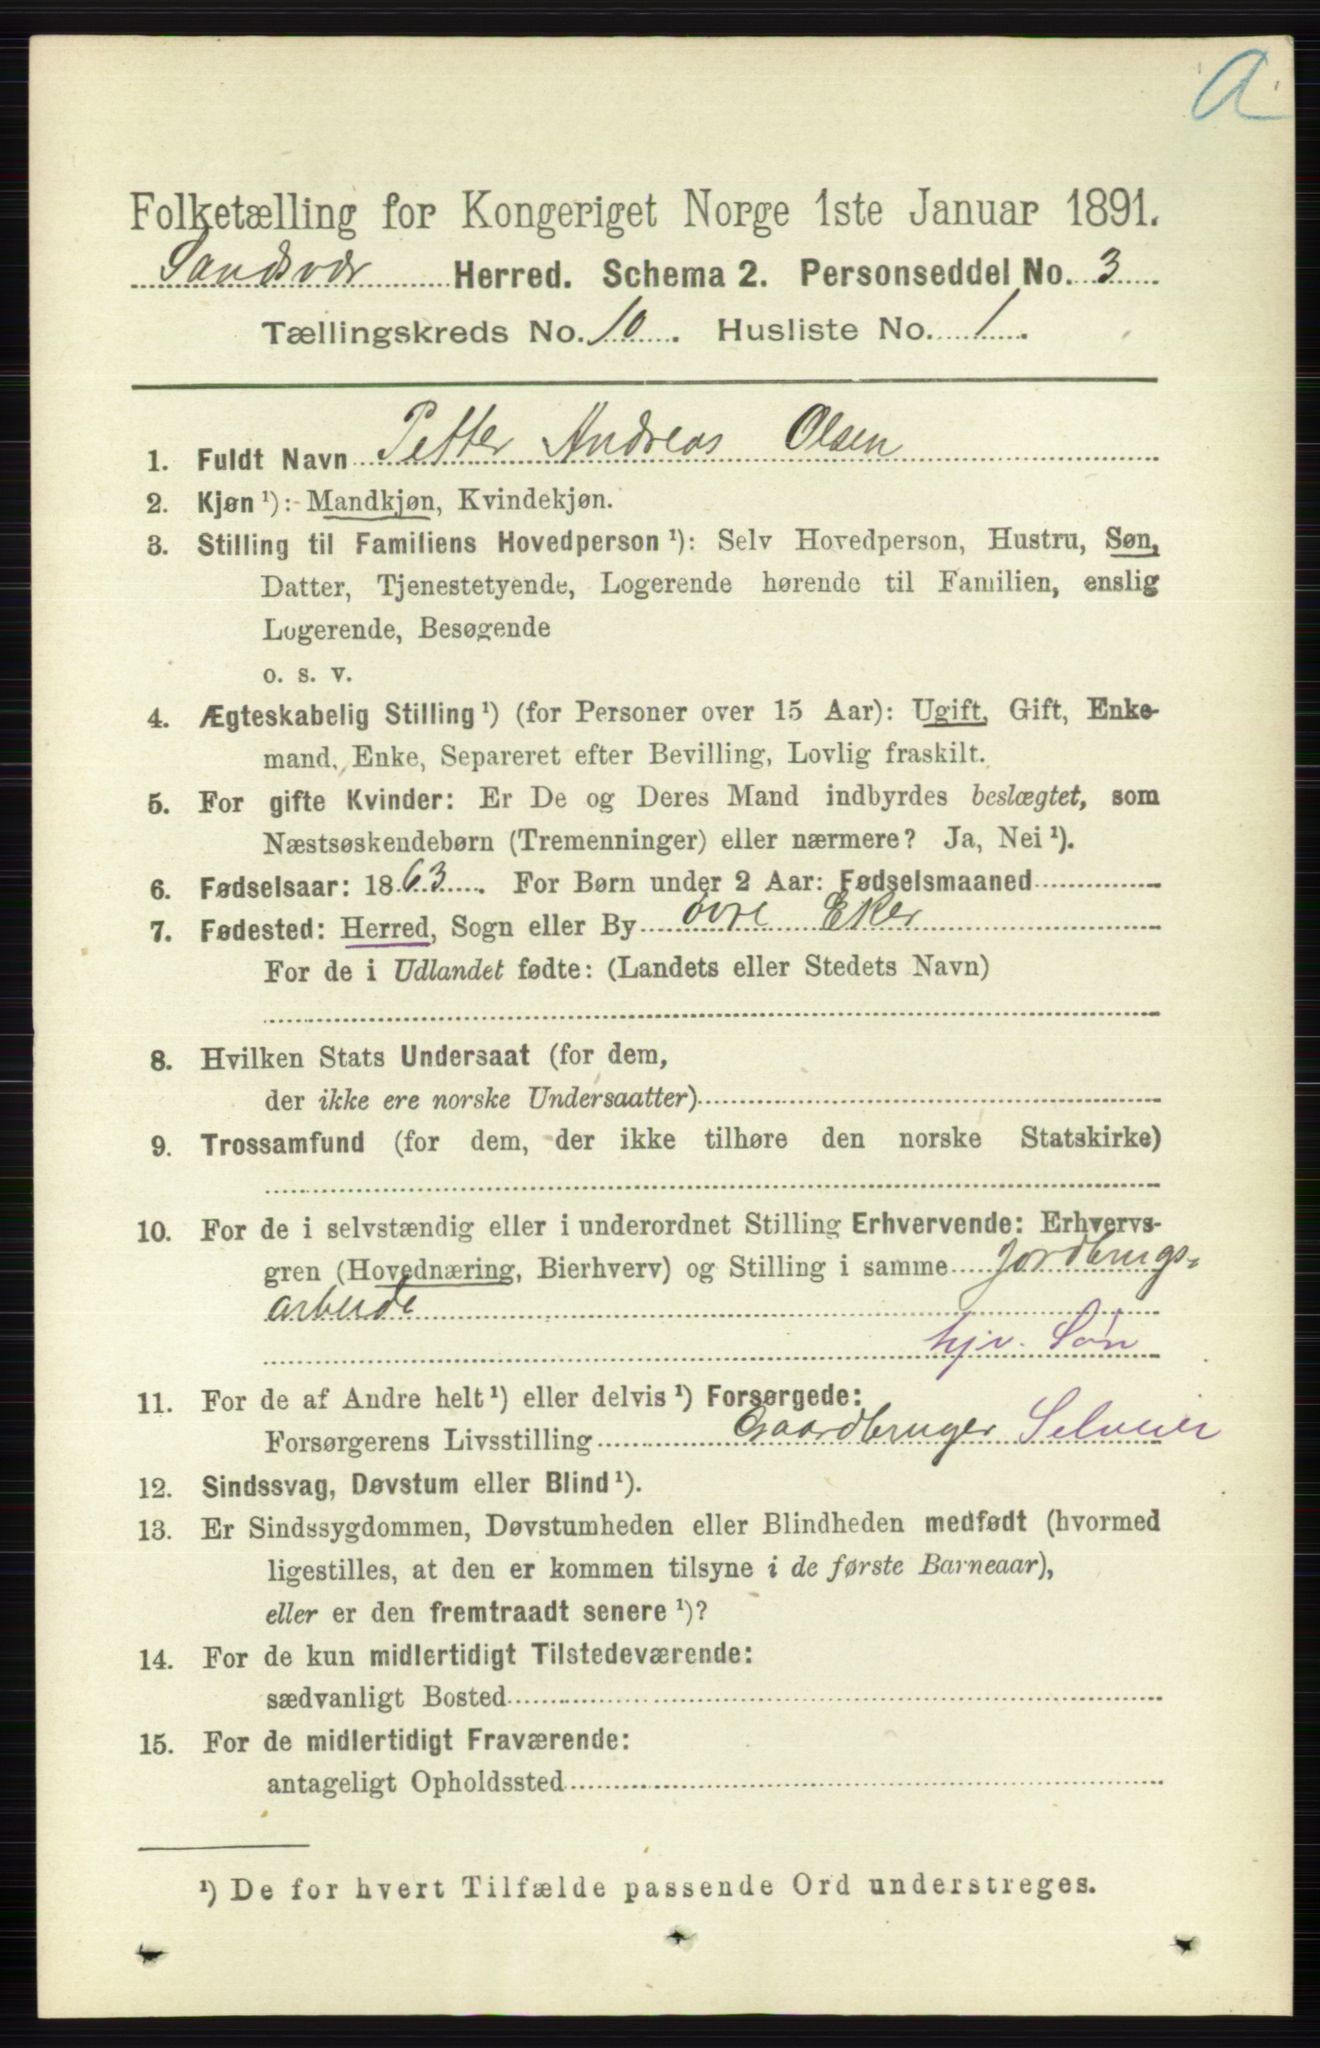 A.
Folketælling for Kongeriget Norge 1ste Januar 1891.
Sandsvær Herred. Schema 2. Personseddel No. 3
Tællingskreds No. 10. Husliste No. 1.
1. Fuldt Navn Petter Andreas Olsen
2. Kjøn ¹): Mandkjøn, Kvindekjøn.
3. Stilling til Familiens Hovedperson ¹): Selv Hovedperson, Hustru, Søn,
Datter, Tjenestetyende, Logerende hørende til Familien, enslig
Logerende, Besøgende
o. s. v.
4. Ægteskabelig Stilling ¹) (for Personer over 15 Aar): Ugift, Gift, Enke-
mand, Enke, Separeret efter Bevilling, Lovlig fraskilt.
5. For gifte Kvinder: Er De og Deres Mand indbyrdes beslægtet, som
Næstsøskendebørn (Tremenninger) eller nærmere? Ja, Nei ¹).
6. Fødselsaar: 1863. For Børn under 2 Aar: Fødselsmaaned
7. Fødested: Herred, Sogn eller By øvre Eker
For de i Udlandet fødte: (Landets eller Stedets Navn)
8. Hvilken Stats Undersaat (for dem,
der ikke ere norske Undersaatter)
9. Trossamfund (for dem, der ikke tilhøre den norske Statskirke)
10. For de i selvstændig eller i underordnet Stilling Erhvervende: Erhvervs-
gren (Hovednæring, Bierhverv) og Stilling i samme Jordbrugs-
arbeide
hjv. Søn
11. For de af Andre helt ¹) eller delvis ¹) Forsørgede:
Forsørgerens Livsstilling Gaardbruger Selveier
12. Sindssvag, Døvstum eller Blind ¹).
13. Er Sindssygdommen, Døvstumheden eller Blindheden medfødt (hvormed
ligestilles, at den er kommen tilsyne i de første Barneaar),
eller er den fremtraadt senere ¹)?
14. For de kun midlertidigt Tilstedeværende:
sædvanligt Bosted
15. For de midlertidigt Fraværende:
antageligt Opholdssted
¹) De for hvert Tilfælde passende Ord understreges.